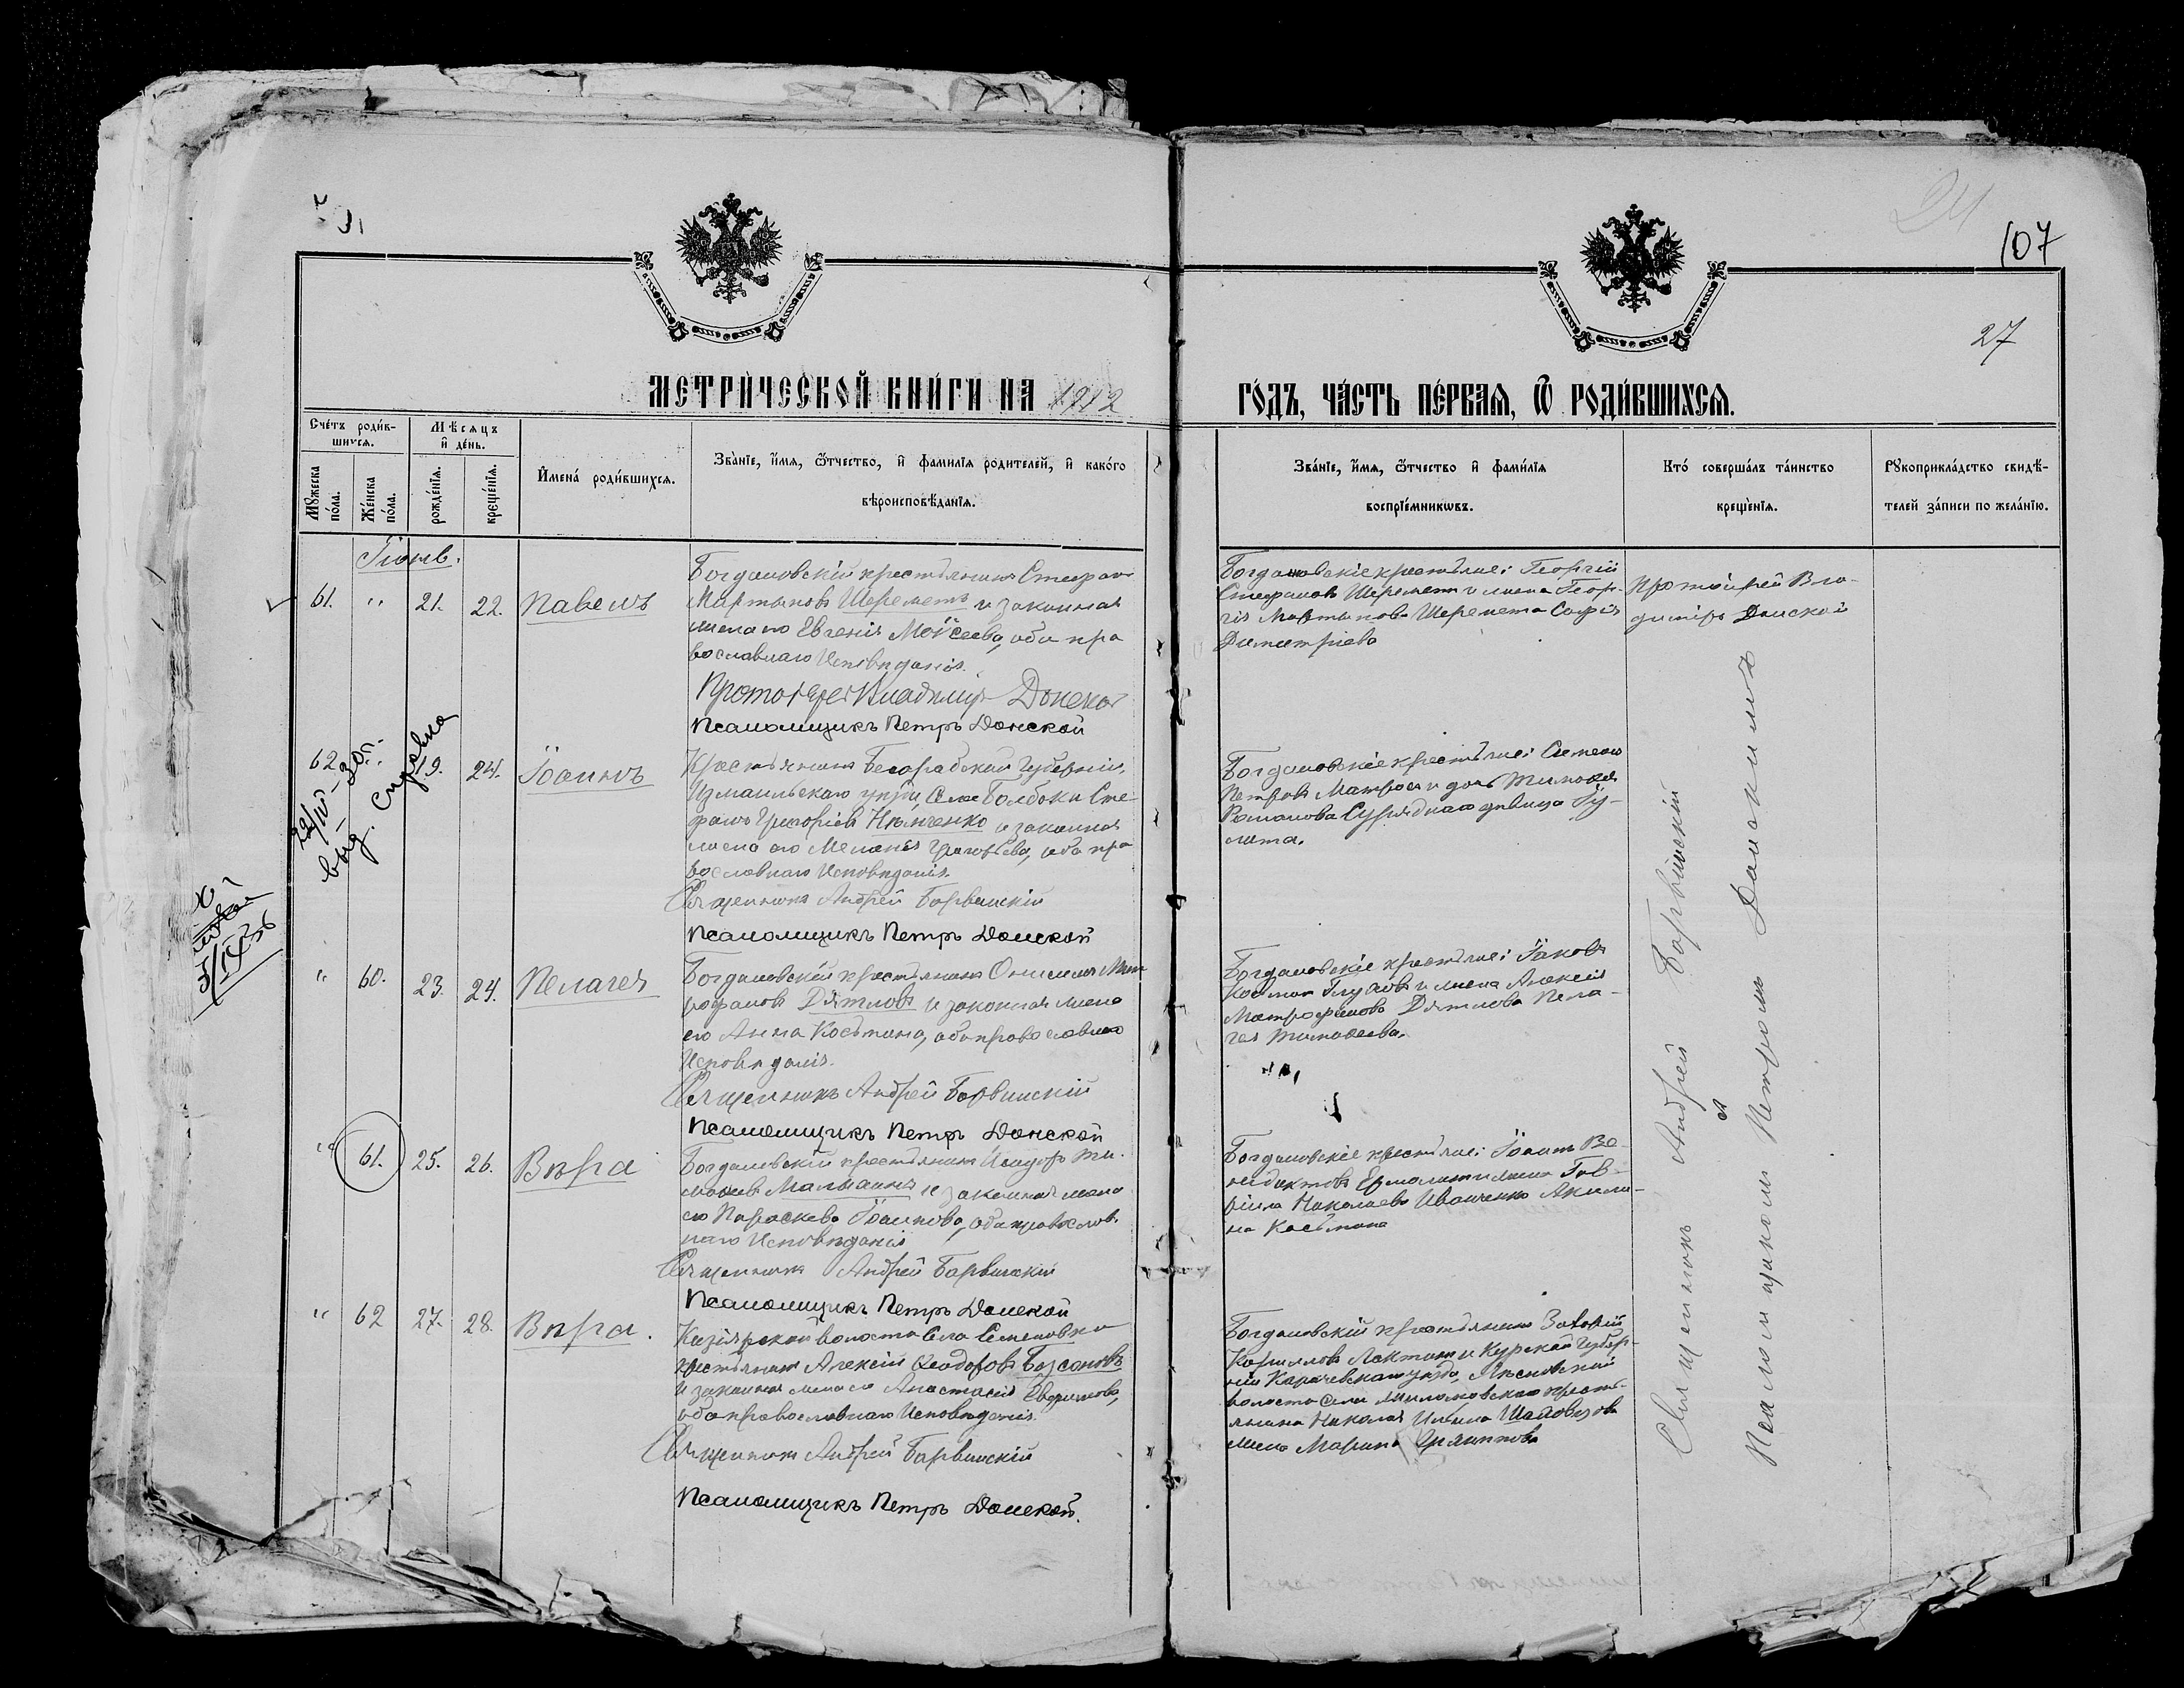 107
27
МЕТРИЧЕСКОЙ КНИГИ НА 1912
ГОДЪ, ЧАСТЬ ПЕРВАЯ, Ѿ РОДИВШИХСЯ.
Счетъ родив-
шихся.
Мѣсяцъ
и день.
Мужеска
пола.
Женска
пола.
рожденія.
крещенія.
Имена родившихся.
Званіе, имя, ѿтчество, и фамилія родителей, и какого
вѣроисповѣданія.
Званіе, имя, ѿтчество и фамилія
воспріемниковъ.
Кто совершалъ таинство
крещенія.
Рукоприкладство свидѣ-
телей записи по желанію.
Іюнь.
61. " 21. 22. Павелъ
Богдановскій крестьянинъ Стефанъ
Мартыновъ Шереметъ и законная
жена его Евгенія Моисеева, оба пра
вославнаго Исповѣданія.
Протоіерей Владиміръ Донской
Псаломщикъ Петръ Донской
Богдановскіе крестьяне: Георгій
Стефановъ Шереметъ и жена Геор-
гія Мартынова Шеремета Софія
Димитріева
Протоіерей Вла-
диміръ Донской
62 " 19. 24. Іоаннъ
Крестьянинъ Бессарабской Губерніи,
Измаильскаго уѣзда, Села Болбоки Сте-
фанъ Григорьевъ Нѣмченко и законная
жена его Меланія Григорьева, оба пра
вославнаго Исповѣданія.
Священникъ Андрей Барвинскій
Псаломщикъ Петръ Донской
Богдановскіе крестьяне: Симеонъ
Петровъ Матросъ и дочь Тимоѳея
Романова дѣвица Іу-
лита.
" 60. 23. 24. Пелагея
Богдановскій крестьянинъ Онисимъ Мит
рофановъ Дятловъ и законная жена
его Анна Косьмина, оба православнаго
Исповѣданія.
Священникъ Андрей Барвинскій
Псаломщикъ Петръ Донской
Богдановскіе крестьяне: Іаковъ
Косминъ Глуховъ и жена Алексія
Митрофанова Дятлова Пела-
гея Тимоѳеева.
" 61. 25. 26. Вѣра
Богдановскій крестьянинъ Исидоръ Ти-
моѳеевъ и законная жена
его Параскева Іоаннова, оба православ-
наго Исповѣданія
Священникъ Андрей Барвинскій
Псаломщикъ Петръ Донской
Богдановскіе крестьяне: Іоаннъ Ве-
недиктовъ и жена Гав-
ріила Николаева Иваненко Акили-
на Косьмина
" 62 27. 28. Вѣра.
волости Села Семеновки
крестьянинъ Алексій Ѳеодоровъ
и законная жена его Анастасія Евфимова,
оба православнаго Исповѣданія.
Священникъ Андрей Барвинскій
Псаломщикъ Петръ Донской.
Богдановскій крестьянинъ
Корниловъ Локтинъ и Курской Губер-
ніи уѣзда,
волости Села кресть-
янина Николая Ильина
жена Марина
Священникъ Андрей Барвинскій
и
Псаломщикомъ Петромъ Донскимъ